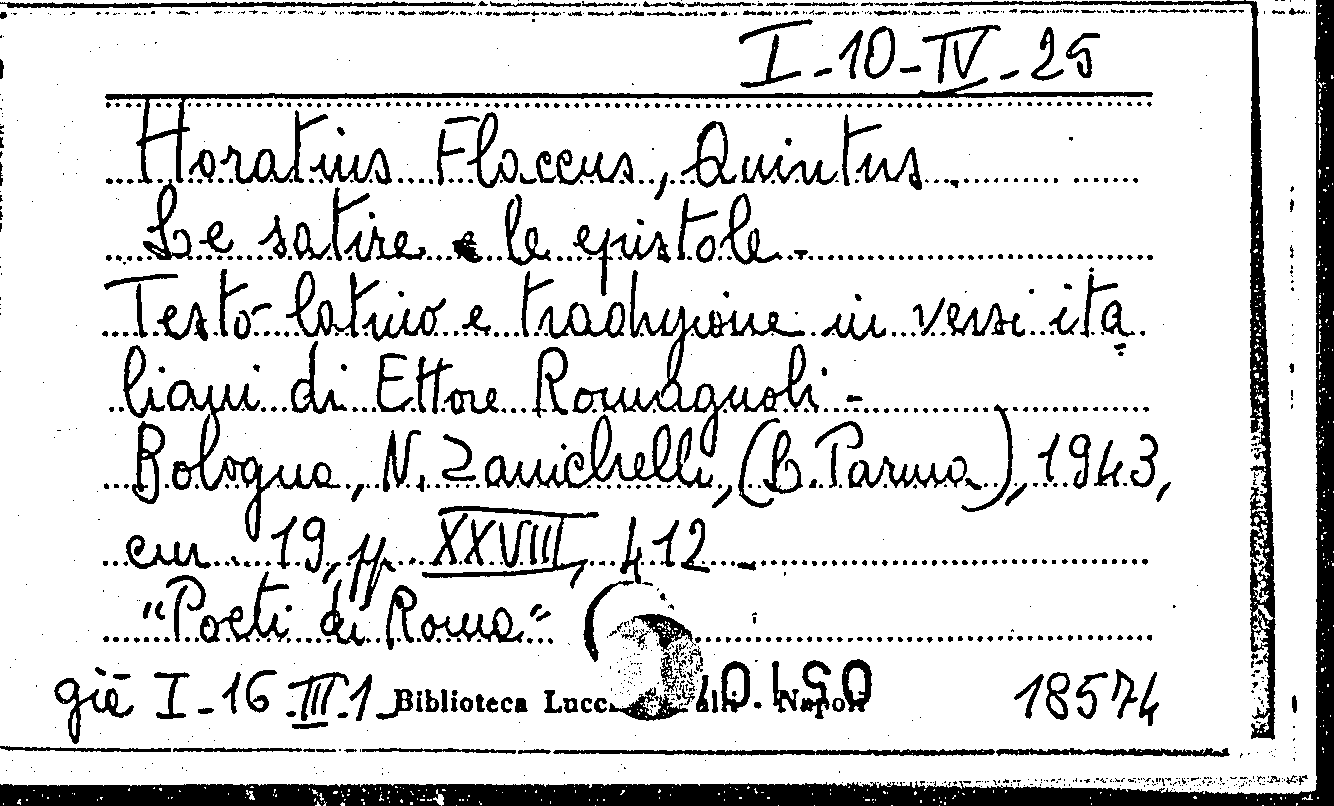 I-10-IV-25
Horatius Flaccus, Quintus.
Le satire e le epistole-
Testo latino e traduzione in versi ita
liani di Ettore Romagnoli-
Bologna, N. Zanichelli, (L. Parma), 1943,
cm. 19, pp. XXVIII, 412-
"Poeti di Roma"
già I-16-III-1 Biblioteca - Napoli 18574